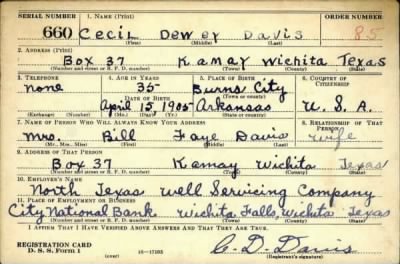 SERIAL NUMBER 1. NAME (Print) ORDER NUMBER
660 Cecil Dewey Davis 85
(First) (Middle) (Last)
2. ADDRESS (Print)
Box 37 Kamay Wichita Texas
(Number and street or R. F. D. number) (Town) (County) (State)
3. TELEPHONE 4. AGE IN YEARS 5. PLACE OF BIRTH 6. COUNTRY OF CITIZENSHIP
none 35 Burns City
DATE OF BIRTH
April 15 1905 Arkansas U.S.A.
(Exchange) (Number) (Mo.) (Day) (Yr.) (State or country)
7. NAME OF PERSON WHO WILL ALWAYS KNOW YOUR ADDRESS 8. RELATIONSHIP OF THAT PERSON
Mrs. Bill Faye Davis Wife
(Mr., Mrs., Miss) (First) (Middle) (Last)
9. ADDRESS OF THAT PERSON
Box 37 Kamay Wichita Texas
(Number and street or R. F. D. number) (Town) (County) (State)
10. EMPLOYER'S NAME
North Texas Well Servicing Company
11. PLACE OF EMPLOYMENT OR BUSINESS
City National Bank Wichita Falls, Wichita Texas
(Number and street or R. F. D. number) (Town) (County) (State)
I AFFIRM THAT I HAVE VERIFIED ABOVE ANSWERS AND THAT THEY ARE TRUE.
REGISTRATION CARD
D. S. S. Form 1 (over) 16—17105 C. D. Davis
(Registrant's signature)